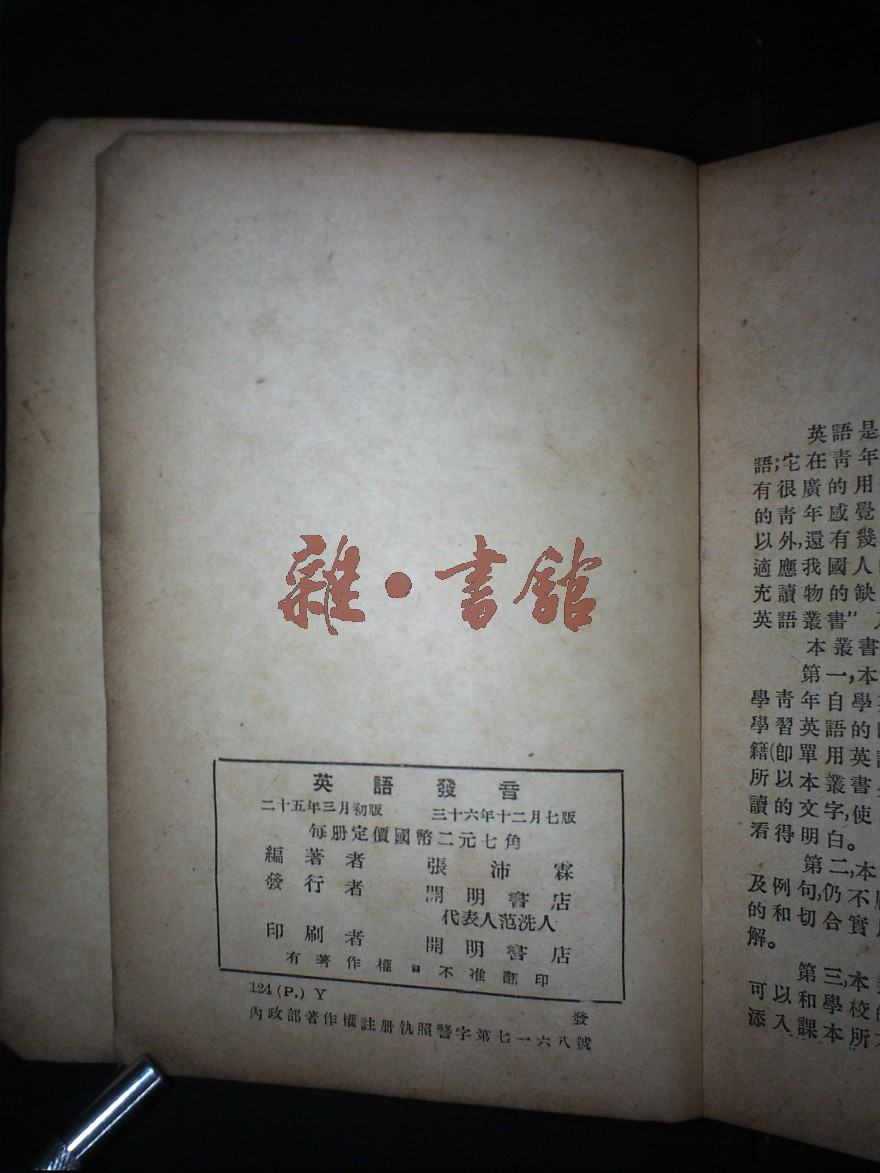 雜·書館
英語發音
二十五年三月初版 三十六年十二月七版
每册定價國幣二元七角
編著者 張沛霖
發行者 開明書店
代表人范洗人
印刷者 開明書店
有著作權不准翻印
124 (P.) Y
發
內政部著作權註册執照警字第七一六八號
英語是
語;它在靑年
有很廣的用
的靑年感覺
以外,還有幾
適應我國人
充讀物的缺
英語叢書”
本叢書
第一,本
學靑年自學
學習英語的
籍(卽單用英語
所以本叢書
讀的文字,使
看得明白。
第二,本
及例句,仍不
的和切合實
解。
第三,本
可以和學校的
添入課本所